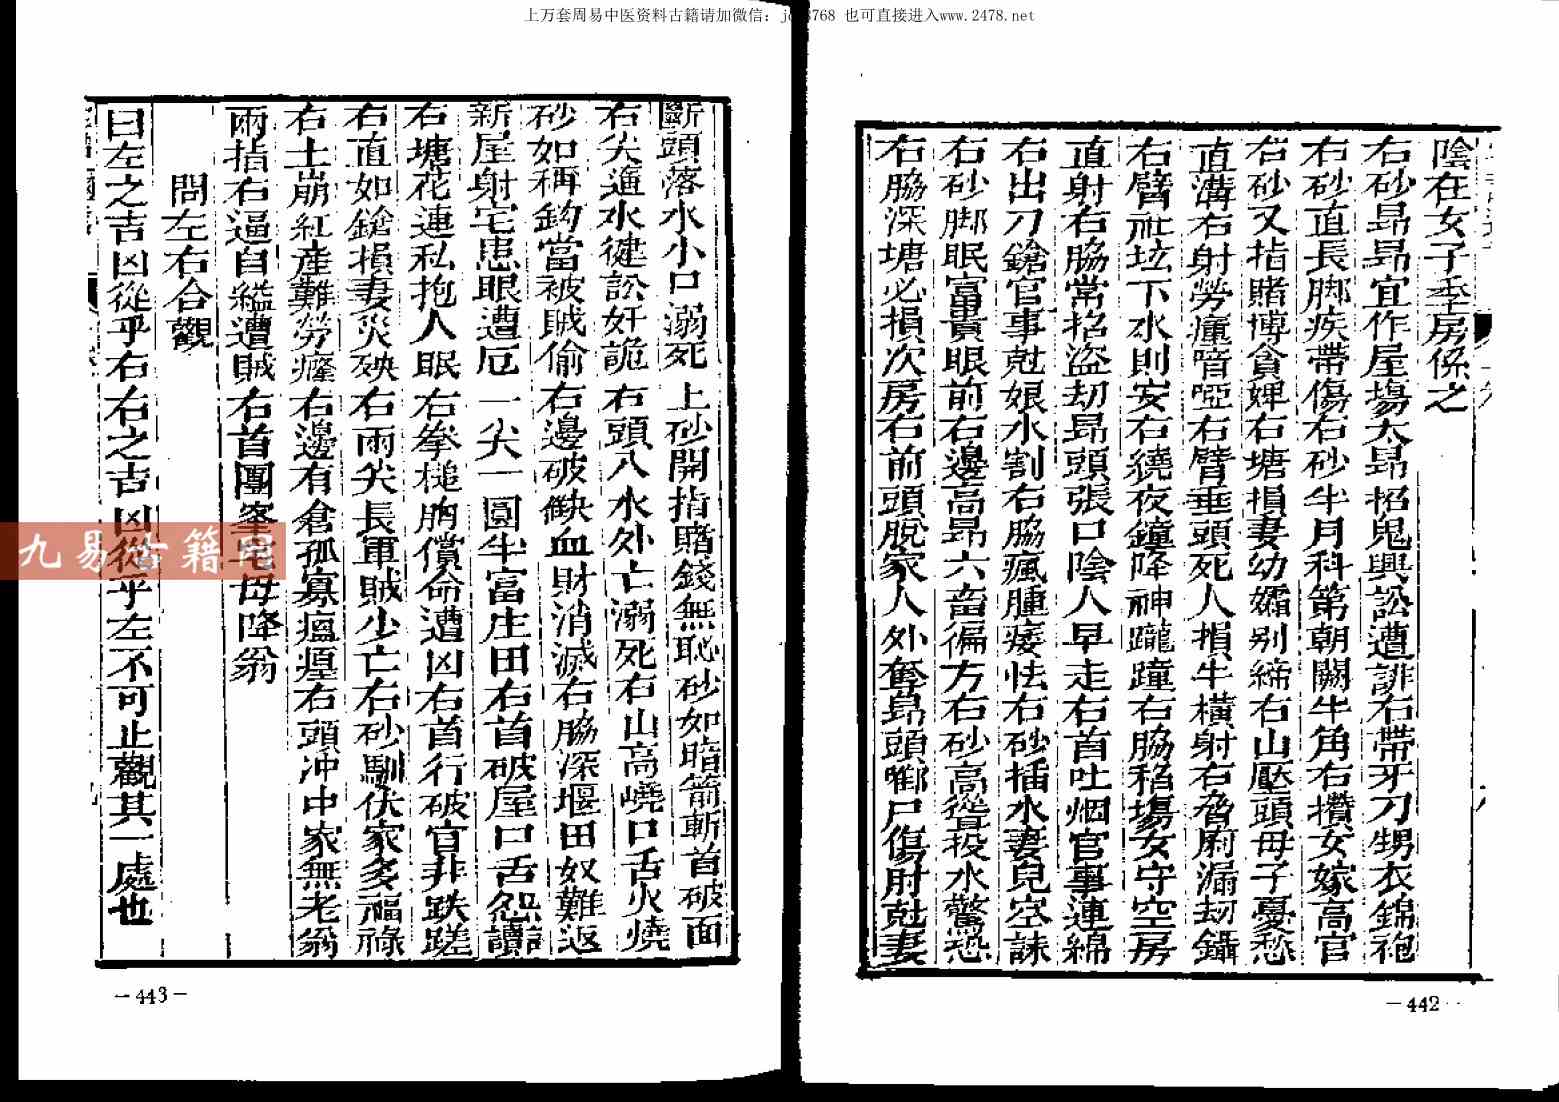 上万套周易中医资料古籍请加微信：jc 3768 也可直接进入www.2478.net
陰在女子季房係之
右砂昻昻宜作屋塲太昻招鬼興訟遭誹右帶牙刀甥衣錦袍
右砂直長脚疾帶傷右砂半月科第朝關牛角右攢女嫁高官
右砂又指賭博貪婬右塘損妻幼孀别締右山壓頭母子憂愁
直溝右射勞瘇喑啞右臂垂頭死人損牛橫射右脅廚漏刼鑷
右臂社垃下水則安右繞夜鐘降神躘踵右脇稻塲女守空房
直射右脇常招盜刼昻頭張口陰人早走右首吐烟官事連綿
右出刀鎗官事尅娘水割右脇瘋腫痿怯右砂插水妻兒空誄
右砂脚眠富貴眼前右邊高昻六畜偏方右砂高聳投水驚恐
右脇深塘必損次房右前頭脫家人外奪昻頭啣尸傷肘尅妻
－442－
斷頭落水小口溺死上砂開指賭錢無恥砂如暗箭斬首破面
右尖進水徤訟奸詭右頭八水外亡溺死右山高嶢口舌火燒
砂如稱鈎當被賊偷右邊破缺血財消滅右脇深堰田奴難返
新屋射宅患眼遭厄一尖一圓牛富庄田右首破屋口舌怨讟
右塘花連私抱人眠右拳槌胸償命遭凶右首行破官非跌蹉
右直如鎗損妻災殃右兩尖長軍賊少亡右砂馴伏家多福祿
右土崩紅産難勞癃右邊有倉孤寡瘟瘽右頭冲中家無老翁
兩指右逼自縊遭賊右首團峯宅母降翁
問左右合觀
曰左之吉凶從乎右右之吉凶從乎左不可止觀其一處也
－443－
九易古籍网